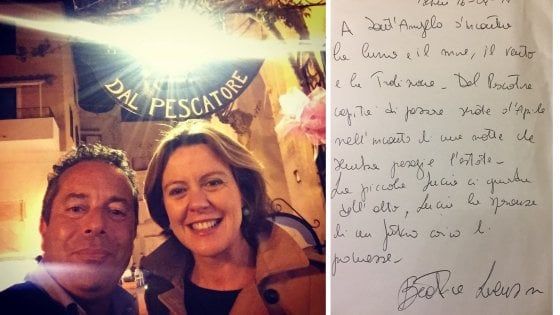 DAL PESCATORE
A Sant'Angelo s'incontra
la luna e il mare, il vento
e la Tradizione. Dal Pescatore
capita di passare serate d'Aprile
nell'incanto di una notte che
sembra l'estate.
La piccola Lucia ci guarda
dall'alto, Lucia la speranza
di un futuro di
promesse.
Beatrice Lorenzin